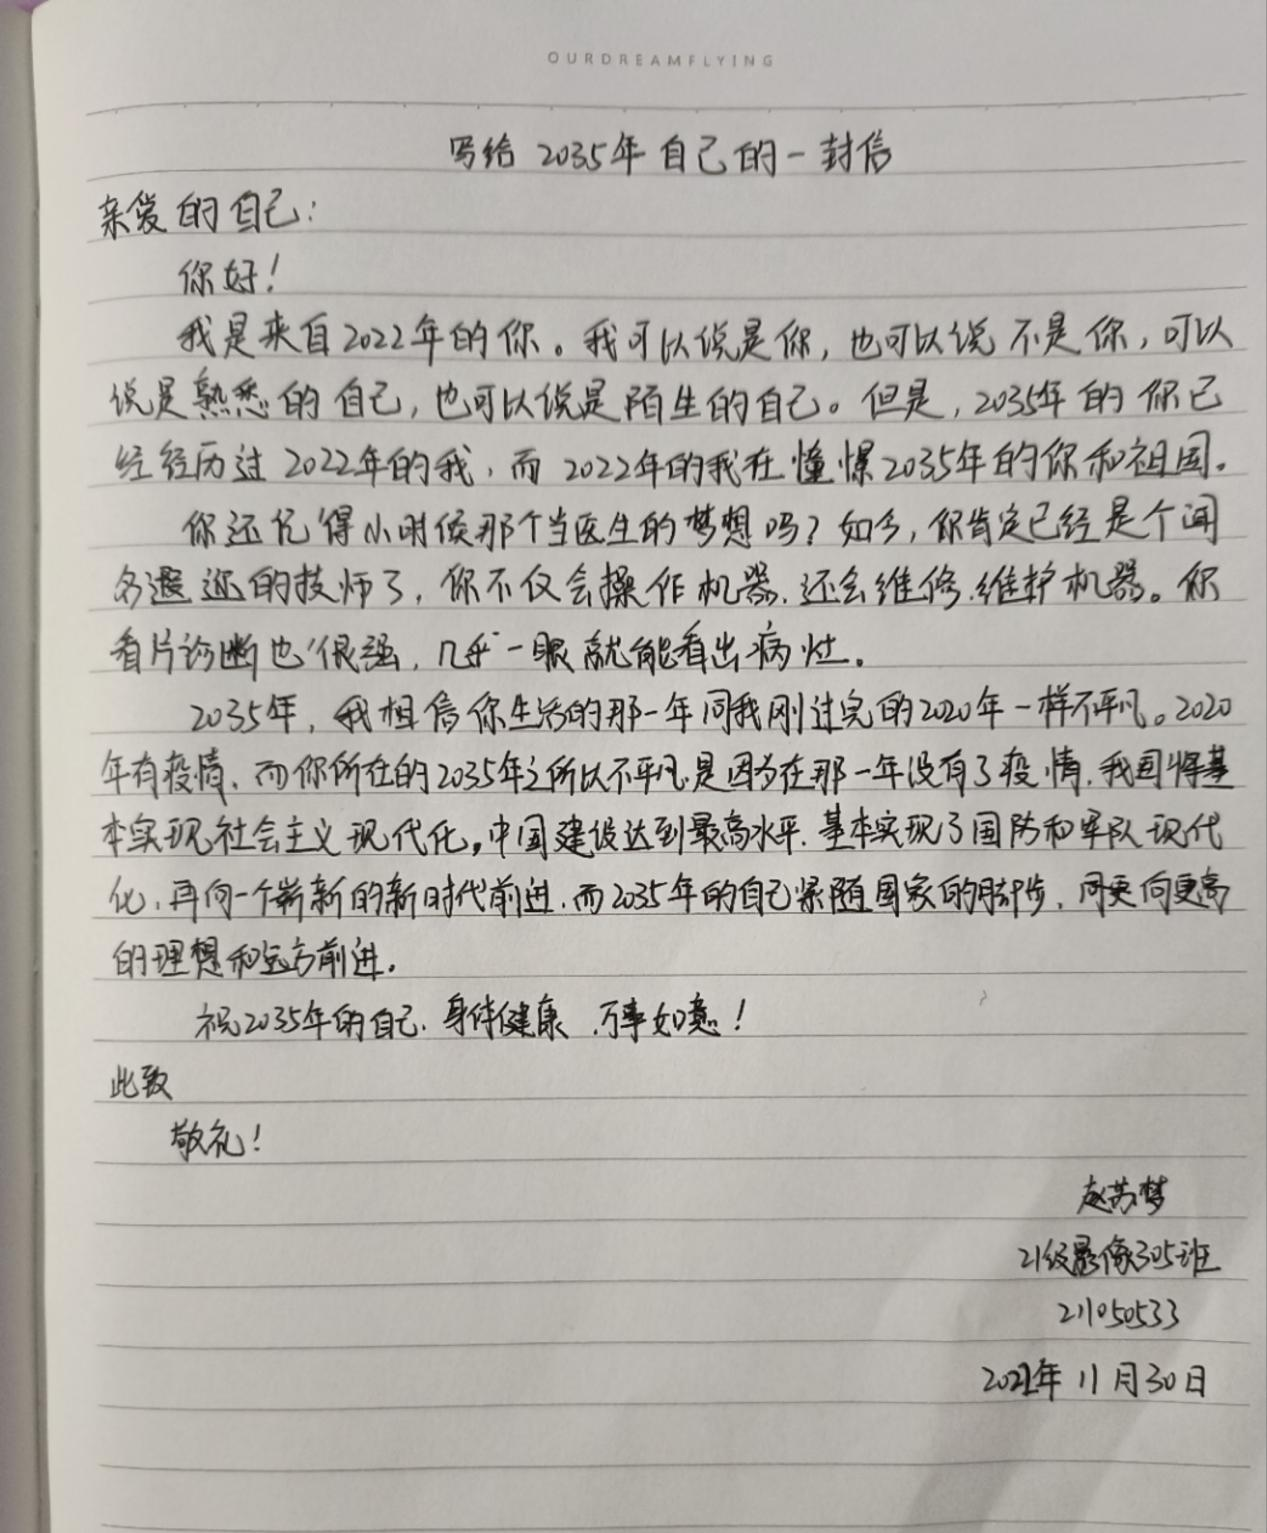 OURDREAMFLYING
写给2035年自己的一封信
亲爱的自己：
你好！
我是来自2022年的你。我可以说是你，也可以说不是你，可以
说是熟悉的自己，也可以说是陌生的自己。但是，2035年的你已
经经历过2022年的我，而2022年的我在憧憬2035年的你和祖国。
你还记得小时候那个当医生的梦想吗？如今，你肯定已经是个闻
名遐迩的技师了，你不仅会操作机器、还会维修、维护机器。你
看片诊断也很强，几乎一眼就能看出病灶。
2035年，我相信你生活的那一年同我刚过完的2020年一样不平凡。2020
年有疫情、而你所在的2035年之所以不平凡是因为在那一年没有了疫情，我国将基
本实现社会主义现代化，中国建设达到最高水平、基本实现了国防和军队现代
化、再向一个崭新的新时代前进、而2035年的自己紧随国家的脚步，同更向更高
的理想和远方前进。
祝2035年的自己、身体健康、万事如意！
此致
敬礼！
赵苏梦
21级影像305班
211050533
2022年11月30日